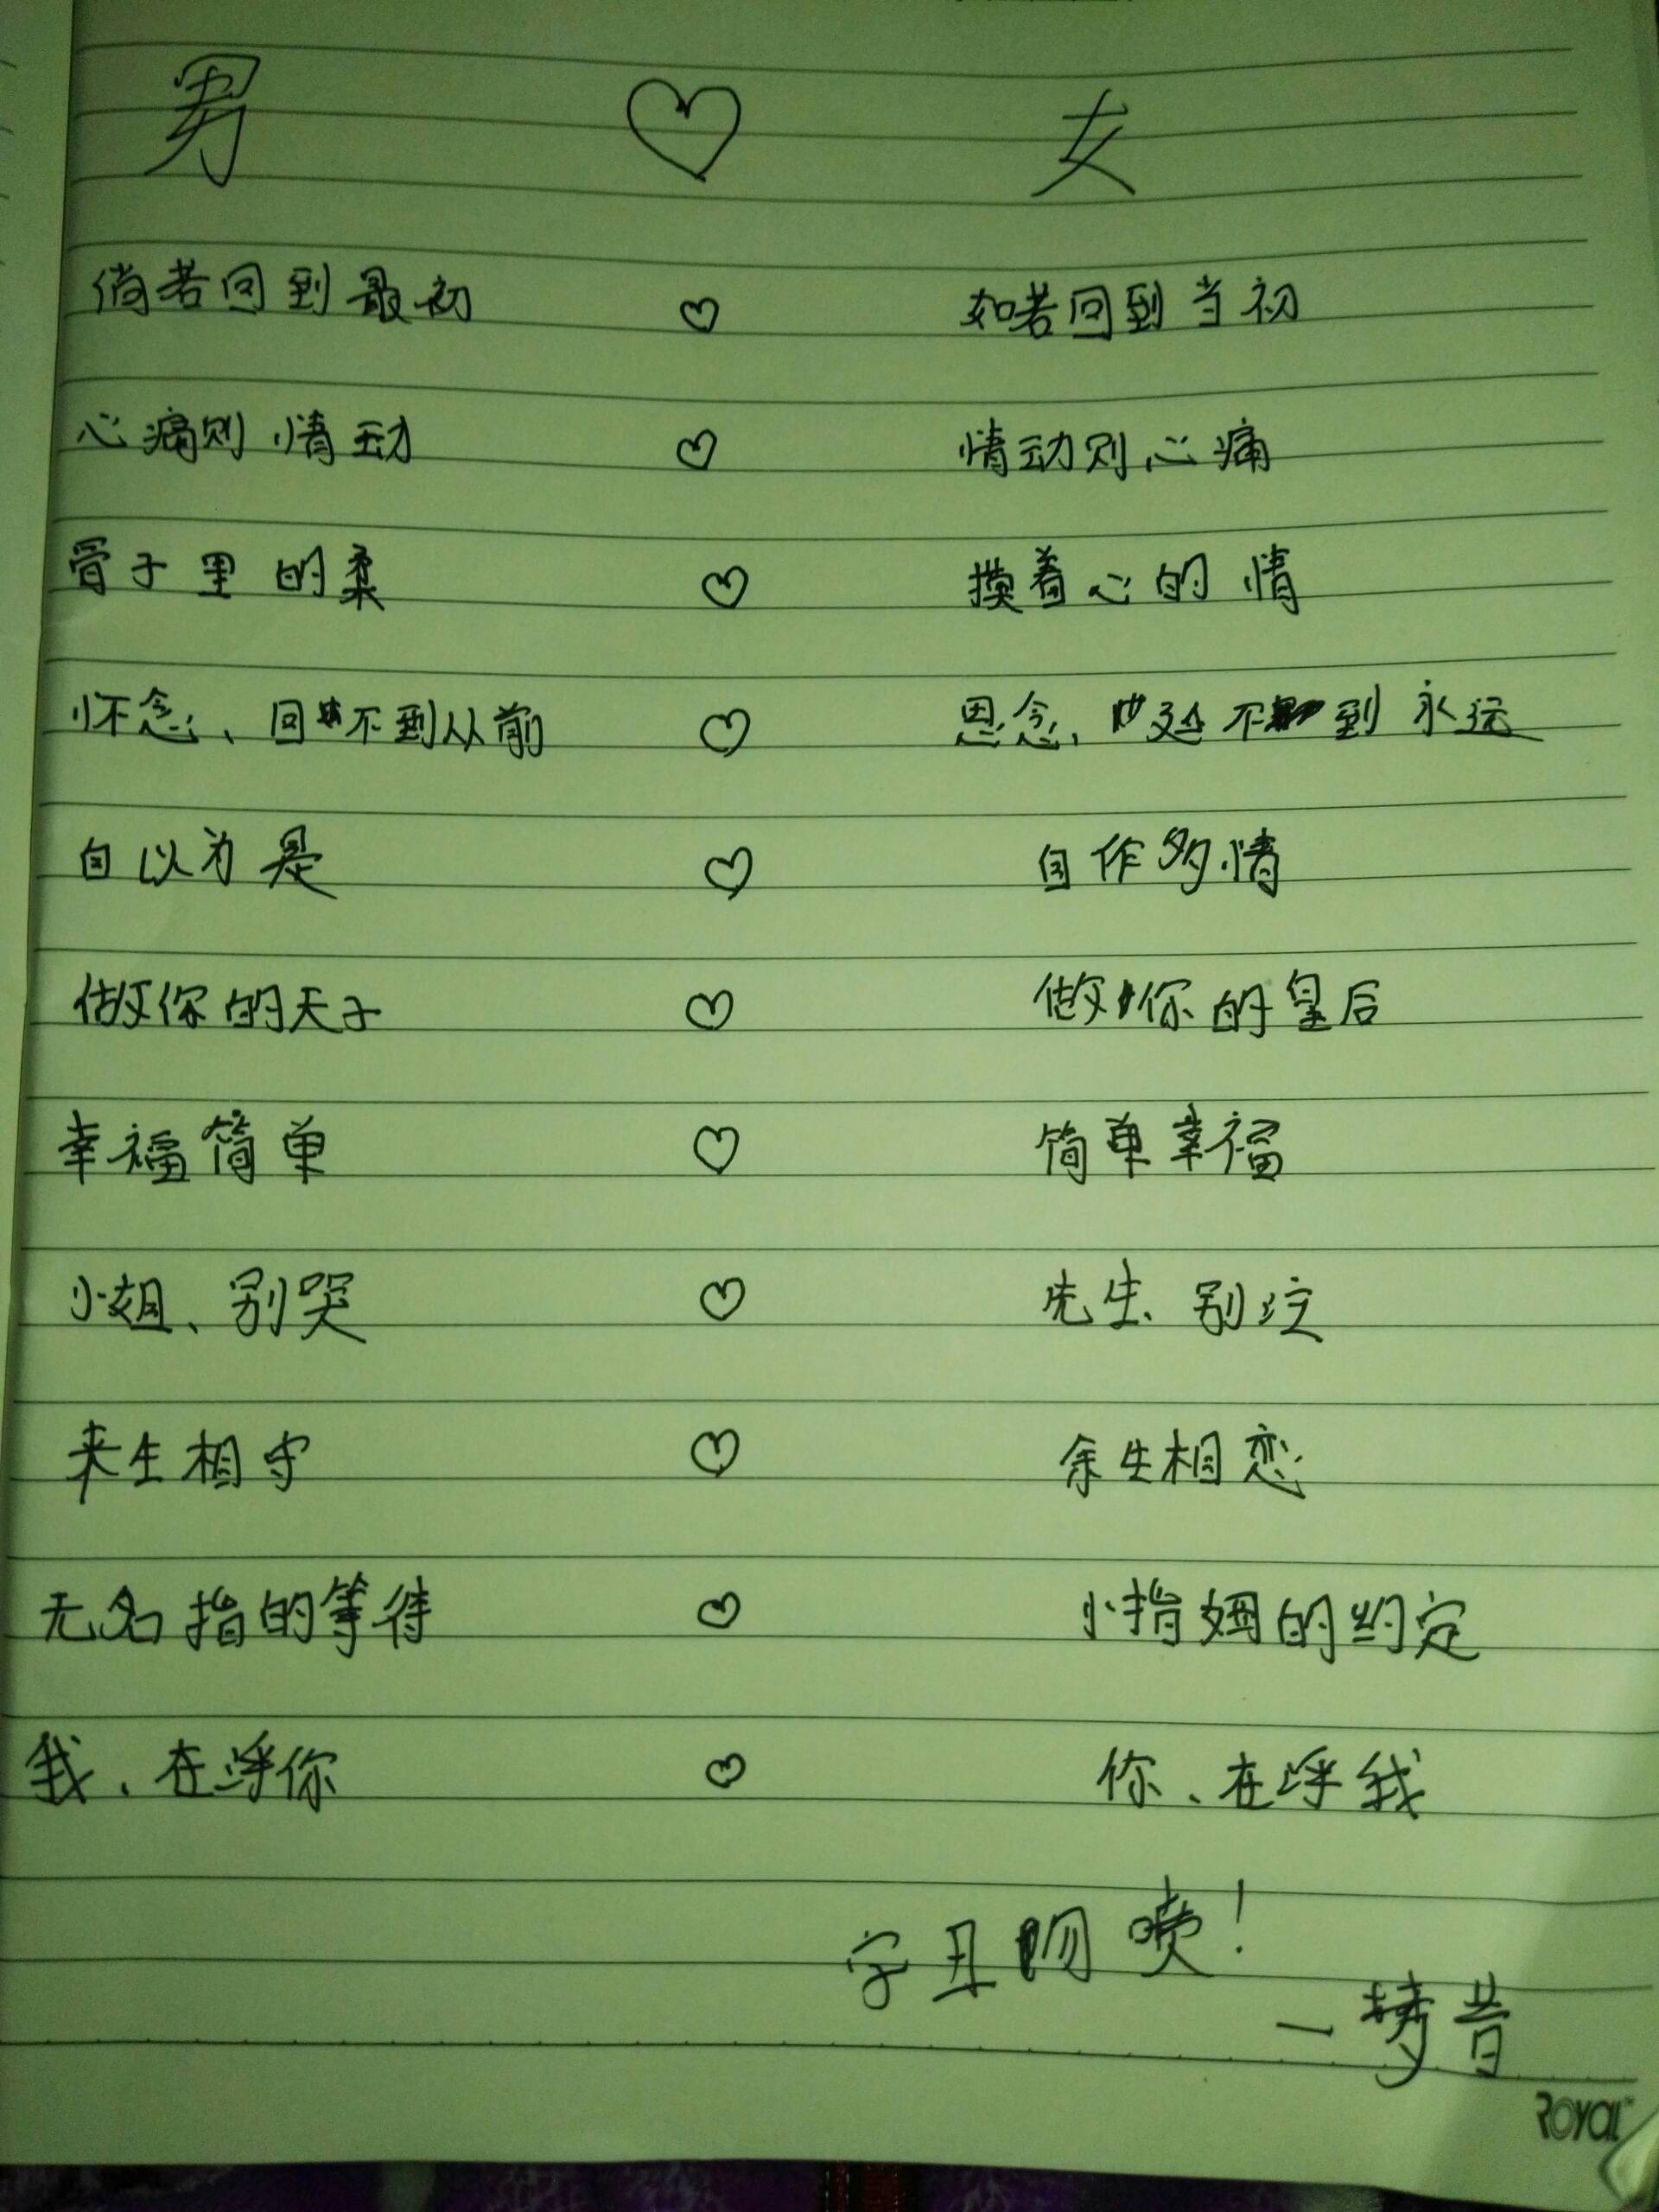 男 ♡ 女
倘若回到最初 ♡ 如若回到当初
心痛则情动 ♡ 情动则心痛
骨子里的柔 ♡ 摸着心的情
怀念、回不到从前 ♡ 思念、延不到永远
自以为是 ♡ 自作多情
做你的天子 ♡ 做你的皇后
幸福简单 ♡ 简单幸福
小姐、别哭 ♡ 先生、别泣
来生相守 ♡ 余生相恋
无名指的等待 ♡ 小指姆的约定
我、在乎你 ♡ 你、在乎我
字丑吻喷!
一梦昔
ROYAL